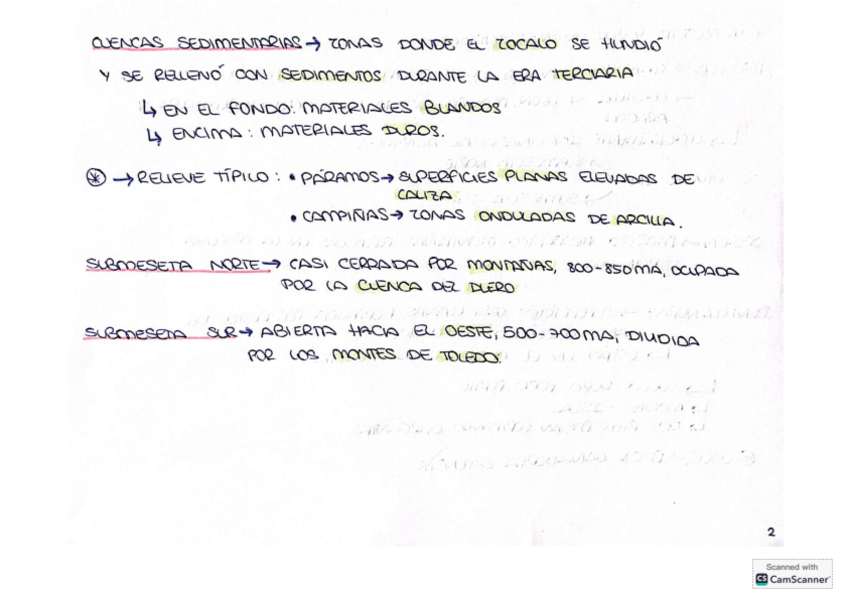 CUENCAS SEDIMENTARIAS → ZONAS DONDE EL ZOCALO SE HUNDIÓ
Y SE RELLENÓ CON SEDIMENTOS DURANTE LA ERA TERCIARIA
↳ EN EL FONDO: MATERIALES BLANDOS
↳ ENCIMA: MATERIALES DUROS.
* → RELIEVE TÍPILO: • PÁRAMOS → SUPERFICIES PLANAS ELEVADAS DE
CALIZA
• CAMPIÑAS → ZONAS ONDULADAS DE ARCILLA.
SUBMESETA NORTE → CASI CERRADA POR MONTAÑAS, 800-850MA, OCUPADA
POR LA CUENCA DEL DUERO
SUBMESETA SUR → ABIERTA HACIA EL OESTE, 500-700MA, DIVIDIDA
POR LOS MONTES DE TOLEDO.
2
Scanned with
CS CamScanner